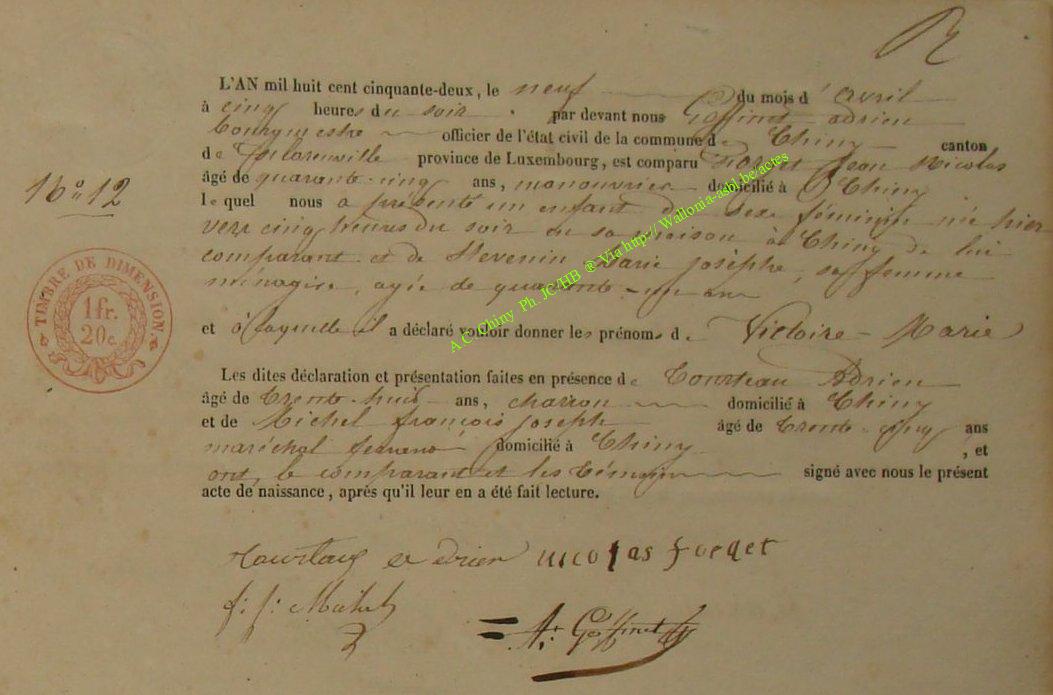 L'AN mil huit cent cinquante-deux, le neuf du mois d' avril
à cinq heures du soir par devant nous Goffinet adrien
bourgmestre officier de l'état civil de la commune de Chiny canton
de province de Luxembourg, est comparu Jean Nicolas
âgé de quarante-cinq ans, manouvrier domicilié à Chiny
N° 12
lequel nous a présenté un enfant de sexe féminin née hier
vers cinq heures du soir en sa maison à Chiny de lui
comparant et de Stevenin Marie Josèphe, sa femme
ménagère, agée de quarante-un ans
TIMBRE DE DIMENSION
1 fr.
20 c.
et à laquelle il a déclaré vouloir donner les prénoms de Victoire-Marie
A.C. Chiny Ph. JC/HB @ Via http://Wallonia-asbl.be/actes
Les dites déclaration et présentation faites en présence de Tourteau Adrien
âgé de trente-huit ans, charron domicilié à Chiny
et de Michel françois joseph âgé de trente-cinq ans
maréchal domicilié à Chiny , et
ont, le comparant et les témoins signé avec nous le présent
acte de naissance, après qu'il leur en a été fait lecture.
nicolas forget
f: j: Michel
A: Goffinet